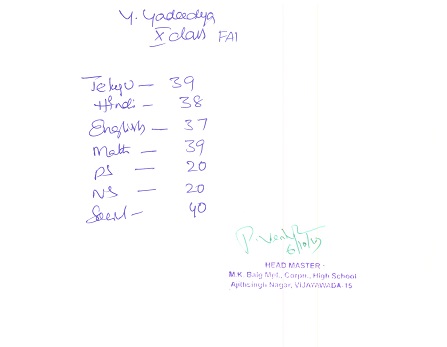 Y. Yadeedya
X class FA1
Telugu — 39
Hindi — 38
English — 37
Math — 39
PS — 20
NS — 20
Social — 40
HEAD MASTER -
M.K. Baig Mpl., Corpn., High School
Ajithsingh Nagar, VIJAYAWADA-15